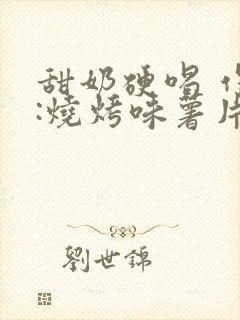 甜奶硬唱
:燒烤味薯片
劉世錦